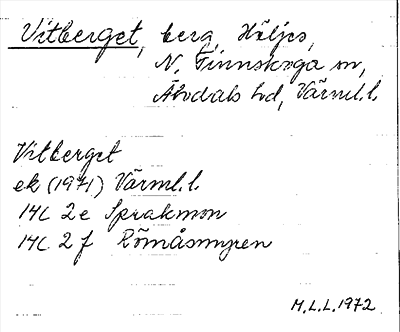 Vitberget, berg, Höljes,
N. Finnskoga sn,
Älvdals hd, Värml.l.
Vitberget
ek (1971) Värml.l.
14C 2e Sprakmon
14C 2f Römåsmyren
M.L.L. 1972